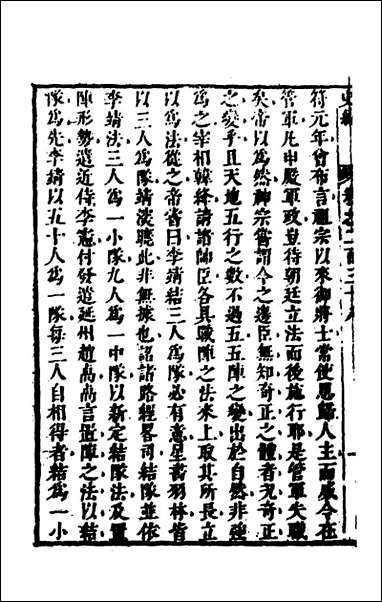 符元年曾布言祖宗以來御將士常使恩歸人主而威令在
管軍凡申嚴軍政豈待朝廷立法而後施行耶是管軍失職
矣帝以爲然神宗嘗謂今之邊臣無知奇正之體者况奇正
之變乎且天地五行之數不過五五陣之變出於自然非强
爲之宰相韓絳請諭帥臣各具戰陣之法來上取其所長立
以爲法從之帝嘗曰李靖結三人爲隊必有意星書羽林皆
以三人爲隊靖深曉此非無據也詔諸路經畧司結隊並依
李靖法三人爲一小隊九人爲一中隊以新定結隊法及置
陣形勢遣近侍李憲付發遣延州趙卨卨言置陣之法以結
隊爲先李靖以五十人爲一隊每三人自相得者結爲一小